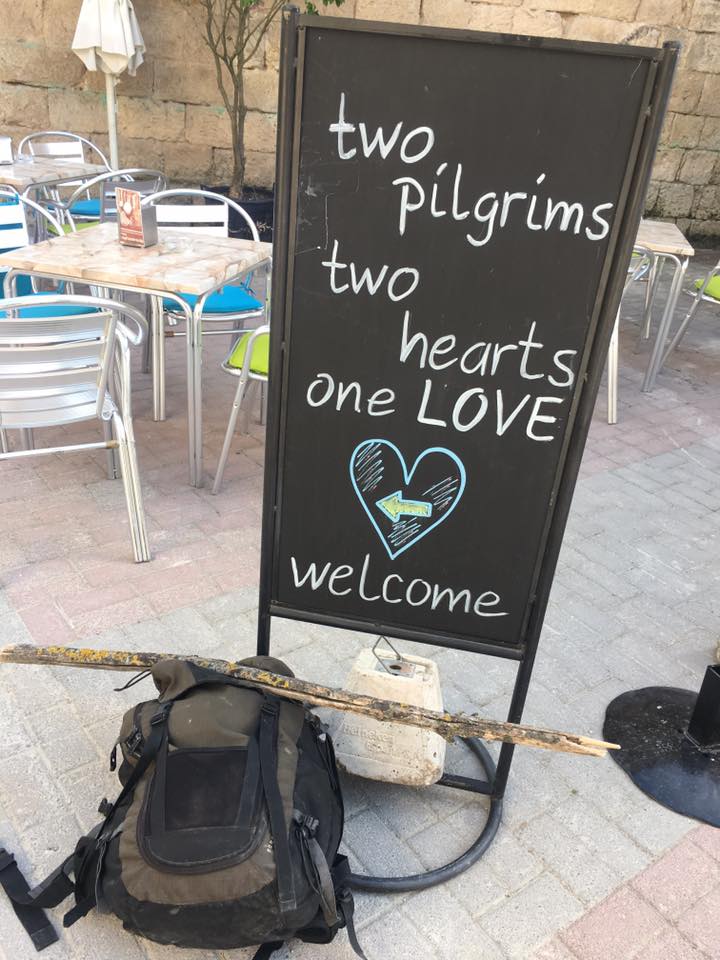 two
pilgrims
two
hearts
one LOVE
welcome